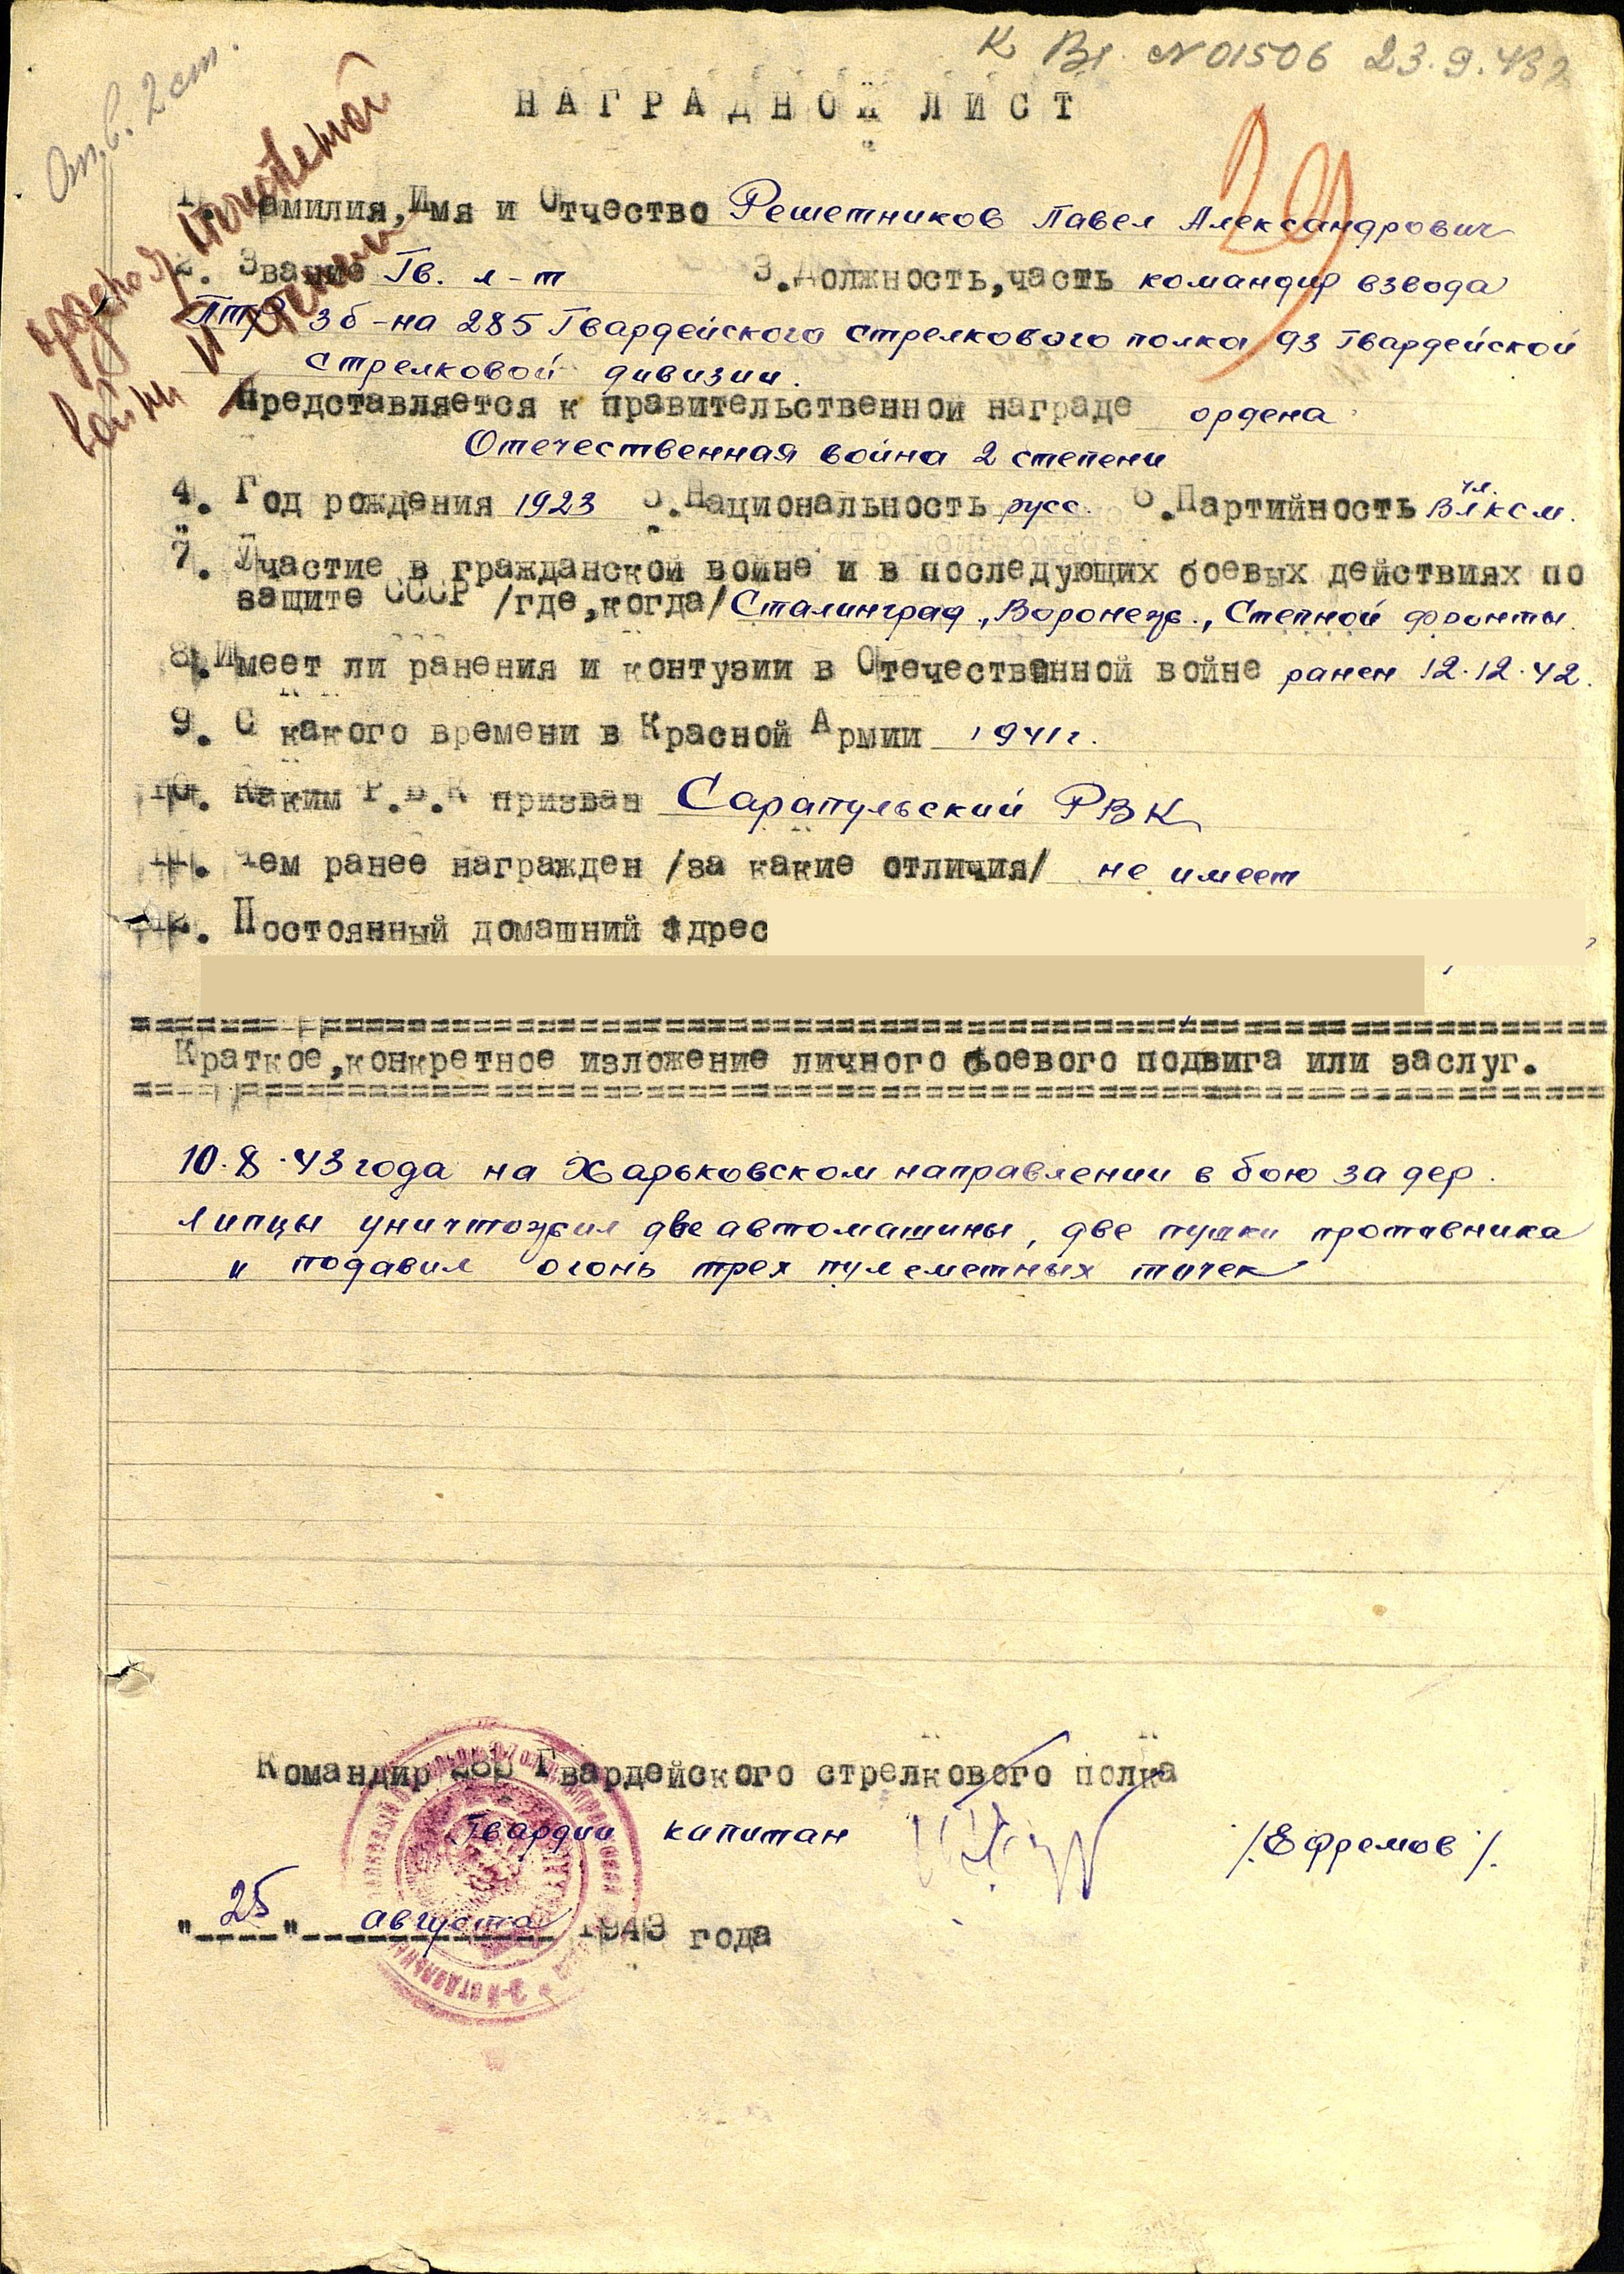 К Вх. N 01506 23.9.43г
От. в. 2 ст.
НАГРАДНОЙ ЛИСТ
29
орденом Отечественной
войны II степени
1. Фамилия, Имя и Отчество Решетников Павел Александрович
2. Звание Гв. л-т 3. Должность, часть командир взвода
ПТР 3 б-на 285 Гвардейского стрелкового полка 93 Гвардейской
стрелковой дивизии.
Представляется к правительственной награде ордена
Отечественная война 2 степени
4. Год рождения 1923 5. Национальность русс. 6. Партийность чл. ВЛКСМ.
7. Участие в гражданской войне и в последующих боевых действиях по
защите СССР /где, когда/ Сталинград., Воронеж., Степной фронты.
8. Имеет ли ранения и контузии в Отечественной войне ранен 12.12.42.
9. С какого времени в Красной Армии 1941г.
10. Каким Р.В.К призван Сарапульский РВК
11. Чем ранее награжден /за какие отличия/ не имеет
12. Постоянный домашний адрес
Краткое, конкретное изложение личного боевого подвига или заслуг.
10.8.43 года на Харьковском направлении в бою за дер.
Липцы уничтожил две автомашины, две пушки противника
и подавил огонь трех пулеметных точек
Командир 285 Гвардейского стрелкового полка
Гвардии капитан /Ефремов/.
"25" августа 1943 года